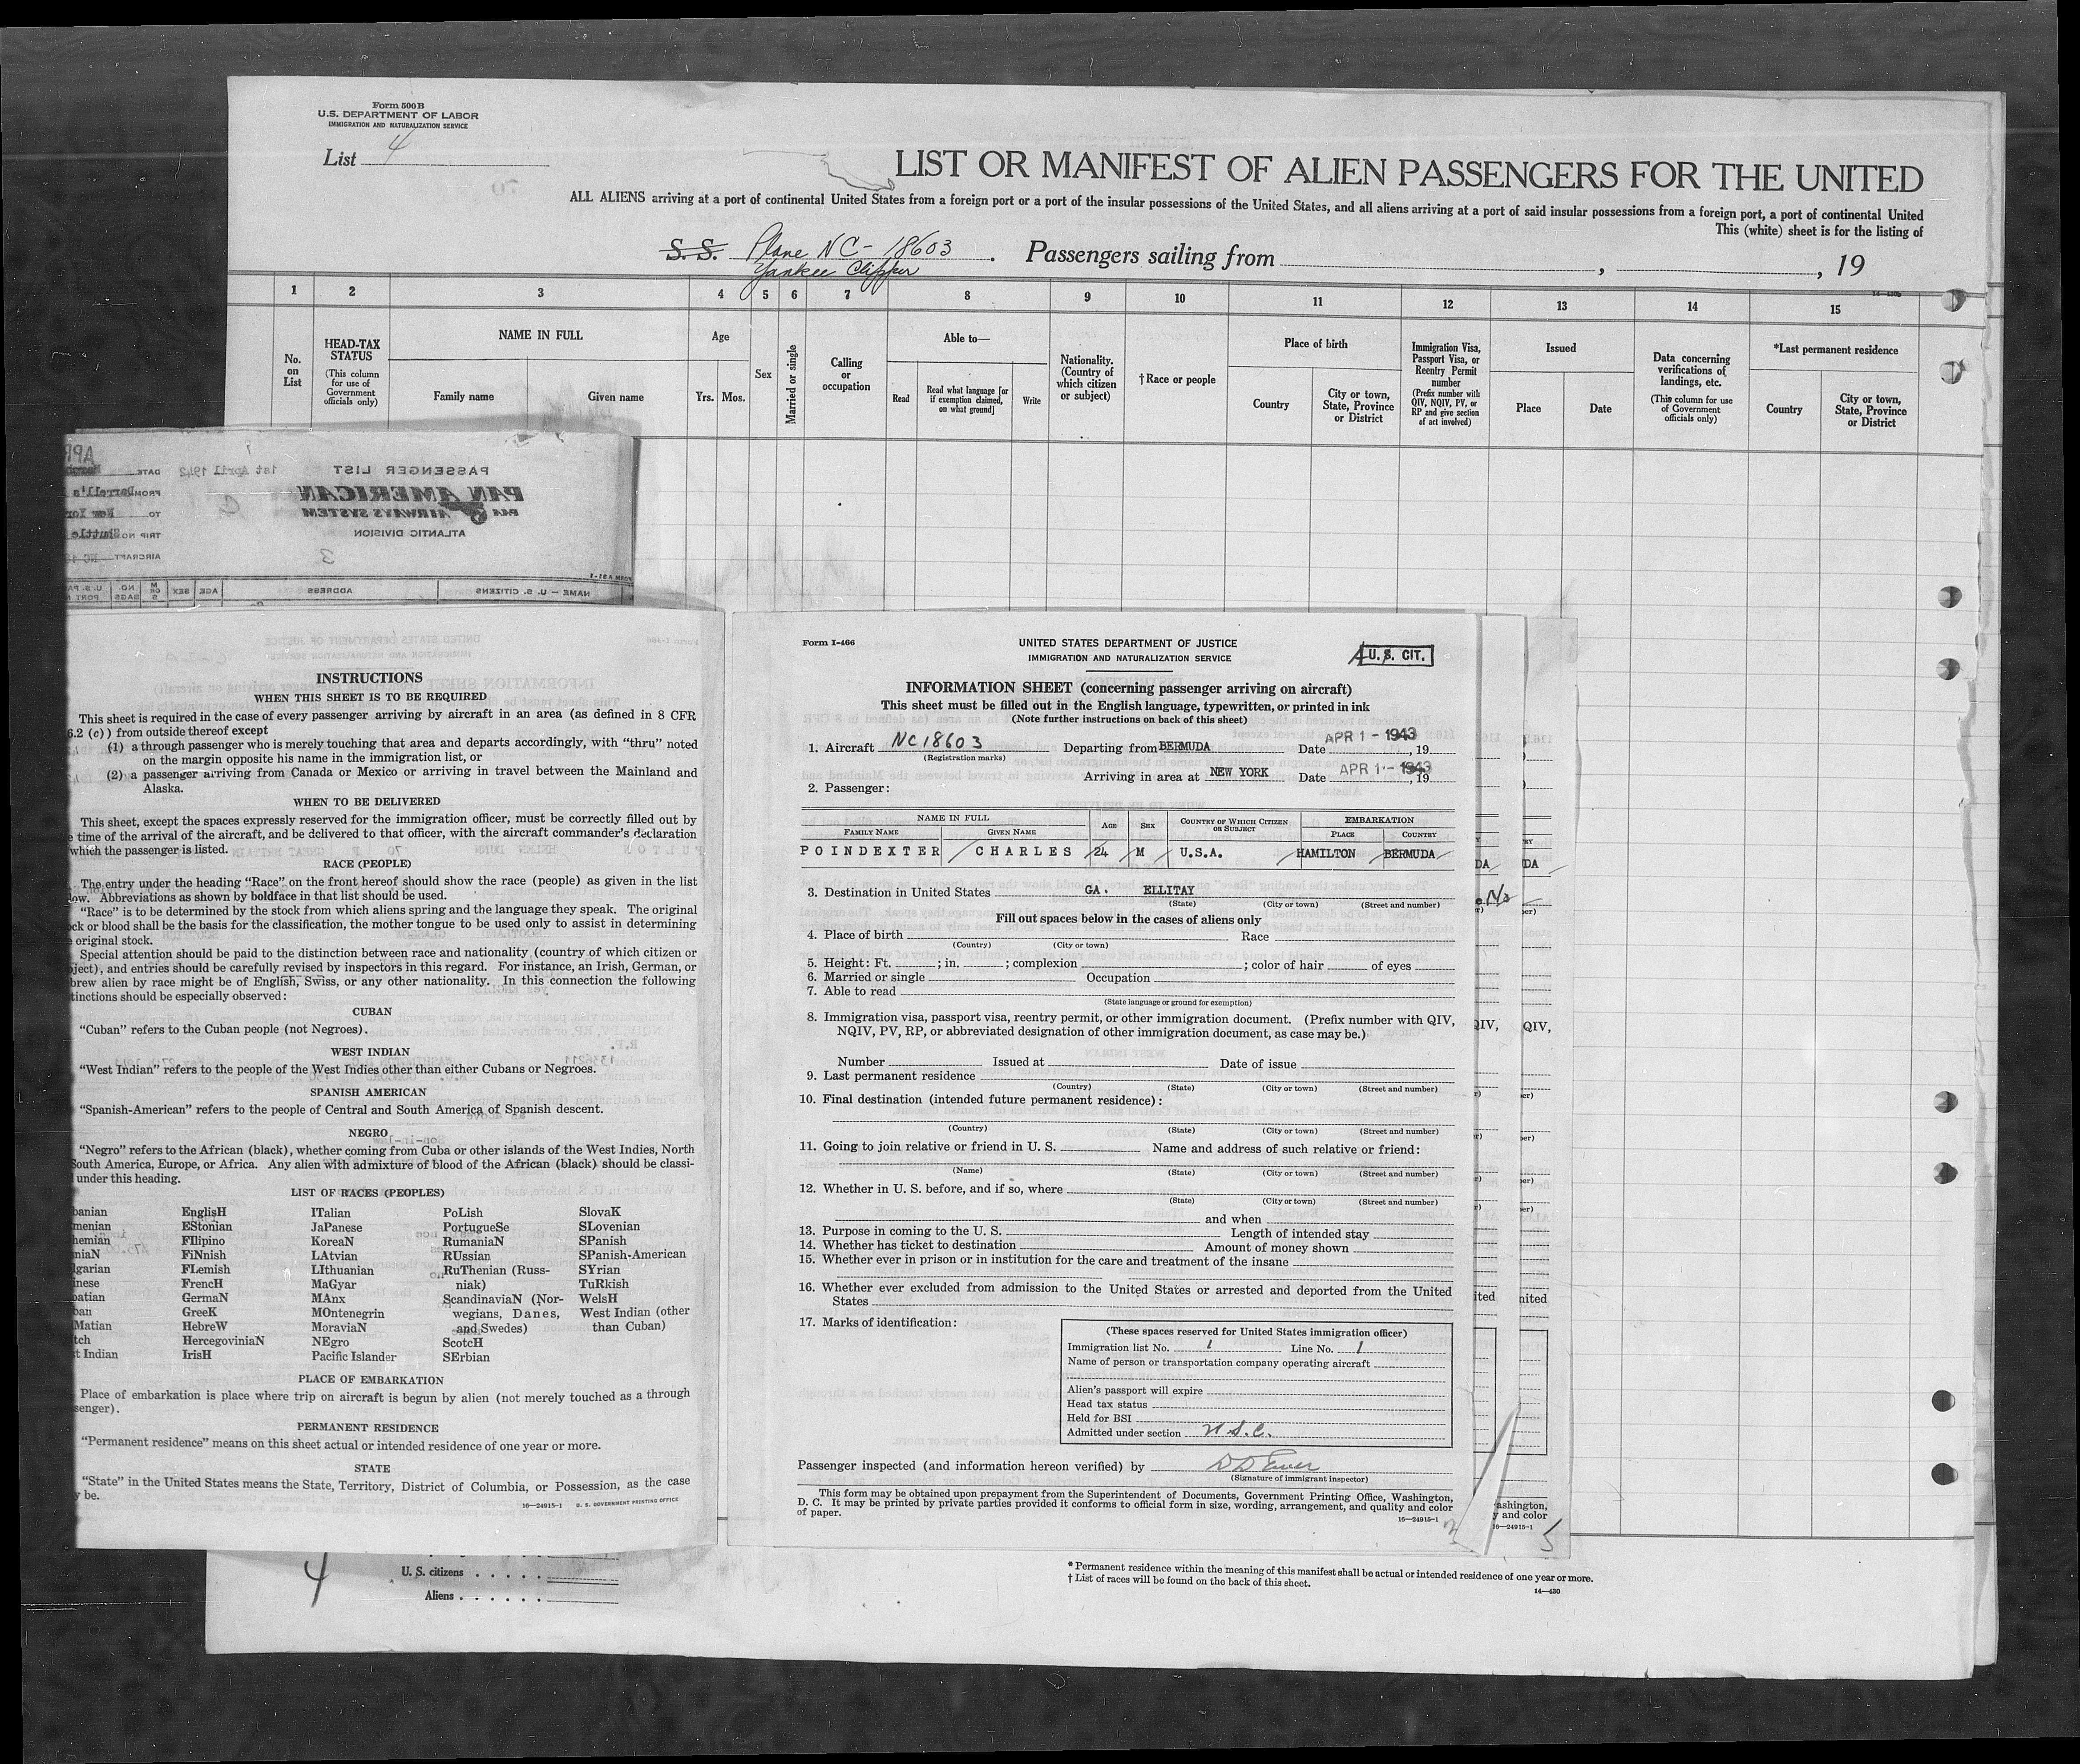 Form 500B
U.S. DEPARTMENT OF LABOR
IMMIGRATION AND NATURALIZATION SERVICE
List 4
LIST OR MANIFEST OF ALIEN PASSENGERS FOR THE UNITED
ALL ALIENS arriving at a port of continental United States from a foreign port or a port of the insular possessions of the United States, and all aliens arriving at a port of said insular possessions from a foreign port, a port of continental United
This (white) sheet is for the listing of
S. S. Plane NC-18603
Yankee Clipper
Passengers sailing from , , 19
14-430b
1 2 3 4 5 6 7 8 9 10 11 12 13 14 15
No. on List
HEAD-TAX STATUS
(This column for use of Government officials only)
NAME IN FULL
Family name Given name
Age
Yrs. Mos.
Sex
Married or single
Calling or occupation
Able to—
Read
Read what language [or if exemption claimed, on what ground]
Write
Nationality. (Country of which citizen or subject)
†Race or people
Place of birth
Country
City or town, State, Province or District
Immigration Visa, Passport Visa, or Reentry Permit number
(Prefix number with QIV, NQIV, PV, or RP and give section of act involved)
Issued
Place Date
Data concerning verifications of landings, etc.
(This column for use of Government officials only)
*Last permanent residence
Country
City or town, State, Province or District
PASSENGER LIST
1st April 1942
DATE
PAN AMERICAN
PAN AIRWAYS SYSTEM
ATLANTIC DIVISION
FROM Darrell's
TO New Yor
TRIP NO Shuttle
AIRCRAFT NC
3
NAME — U. S. CITIZENS ADDRESS AGE SEX M OR S NO. BAGS
INSTRUCTIONS
WHEN THIS SHEET IS TO BE REQUIRED
This sheet is required in the case of every passenger arriving by aircraft in an area (as defined in 8 CFR
6.2 (c)) from outside thereof except
(1) a through passenger who is merely touching that area and departs accordingly, with “thru” noted
on the margin opposite his name in the immigration list, or
(2) a passenger arriving from Canada or Mexico or arriving in travel between the Mainland and
Alaska.
WHEN TO BE DELIVERED
This sheet, except the spaces expressly reserved for the immigration officer, must be correctly filled out by
e time of the arrival of the aircraft, and be delivered to that officer, with the aircraft commander's declaration
which the passenger is listed.
RACE (PEOPLE)
The entry under the heading “Race” on the front hereof should show the race (people) as given in the list
low. Abbreviations as shown by boldface in that list should be used.
“Race” is to be determined by the stock from which aliens spring and the language they speak. The original
ock or blood shall be the basis for the classification, the mother tongue to be used only to assist in determining
original stock.
Special attention should be paid to the distinction between race and nationality (country of which citizen or
bject), and entries should be carefully revised by inspectors in this regard. For instance, an Irish, German, or
brew alien by race might be of English, Swiss, or any other nationality. In this connection the following
tinctions should be especially observed:
CUBAN
“Cuban” refers to the Cuban people (not Negroes).
WEST INDIAN
“West Indian” refers to the people of the West Indies other than either Cubans or Negroes.
SPANISH AMERICAN
“Spanish-American” refers to the people of Central and South America of Spanish descent.
NEGRO
“Negro” refers to the African (black), whether coming from Cuba or other islands of the West Indies, North
South America, Europe, or Africa. Any alien with admixture of blood of the African (black) should be classi-
under this heading.
LIST OF RACES (PEOPLES)
banian EnglisH ITalian PoLish SlovaK
menian EStonian JaPanese PortugueSe SLovenian
hemian FIlipino KoreaN RumaniaN SPanish
niaN FiNnish LAtvian RUssian SPanish-American
lgarian FLemish LIthuanian RuThenian (Russ- SYrian
inese FrencH MaGyar niak) TuRkish
oatian GermaN MAnx ScandinaviaN (Nor- WelsH
ban GreeK MOntenegrin wegians, Danes, West Indian (other
Matian HebreW MoraviaN and Swedes) than Cuban)
tch HercegoviniaN NEgro ScotcH
t Indian IrisH Pacific Islander SErbian
PLACE OF EMBARKATION
Place of embarkation is place where trip on aircraft is begun by alien (not merely touched as a through
senger).
PERMANENT RESIDENCE
“Permanent residence” means on this sheet actual or intended residence of one year or more.
STATE
“State” in the United States means the State, Territory, District of Columbia, or Possession, as the case
y be.
16—24915-1 U. S. GOVERNMENT PRINTING OFFICE
Form I-466
UNITED STATES DEPARTMENT OF JUSTICE
IMMIGRATION AND NATURALIZATION SERVICE
U. S. CIT.
INFORMATION SHEET (concerning passenger arriving on aircraft)
This sheet must be filled out in the English language, typewritten, or printed in ink
(Note further instructions on back of this sheet)
1. Aircraft NC18603 Departing from BERMUDA Date APR 1 - 1943, 19
(Registration marks)
Arriving in area at NEW YORK Date APR 1 - 1943, 19
2. Passenger:
NAME IN FULL AGE SEX COUNTRY OF WHICH CITIZEN OR SUBJECT EMBARKATION
FAMILY NAME GIVEN NAME PLACE COUNTRY
POINDEXTER CHARLES 24 M U.S.A. HAMILTON BERMUDA
3. Destination in United States GA. ELLITAY
(State) (City or town) (Street and number)
Fill out spaces below in the cases of aliens only
4. Place of birth Race
(Country) (City or town)
5. Height: Ft. ; in. ; complexion ; color of hair of eyes
6. Married or single Occupation
7. Able to read
(State language or ground for exemption)
8. Immigration visa, passport visa, reentry permit, or other immigration document. (Prefix number with QIV,
NQIV, PV, RP, or abbreviated designation of other immigration document, as case may be.)
Number Issued at Date of issue
9. Last permanent residence
(Country) (State) (City or town) (Street and number)
10. Final destination (intended future permanent residence):
(Country) (State) (City or town) (Street and number)
11. Going to join relative or friend in U. S. Name and address of such relative or friend:
(Name) (State) (City or town) (Street and number)
12. Whether in U. S. before, and if so, where
(State) (City or town) (Street and number)
and when
13. Purpose in coming to the U. S. Length of intended stay
14. Whether has ticket to destination Amount of money shown
15. Whether ever in prison or in institution for the care and treatment of the insane
16. Whether ever excluded from admission to the United States or arrested and deported from the United
States
17. Marks of identification:
(These spaces reserved for United States immigration officer)
Immigration list No. 1 Line No. 1
Name of person or transportation company operating aircraft
Alien's passport will expire
Head tax status
Held for BSI
Admitted under section U.S.C.
Passenger inspected (and information hereon verified) by
(Signature of immigrant inspector)
This form may be obtained upon prepayment from the Superintendent of Documents, Government Printing Office, Washington,
D. C. It may be printed by private parties provided it conforms to official form in size, wording, arrangement, and quality and color
of paper.
16—24915-1
DA DA
No
QIV, QIV,
ited nited
ashington,
y and color
16—24915-1
5
4
U. S. citizens
Aliens
* Permanent residence within the meaning of this manifest shall be actual or intended residence of one year or more.
† List of races will be found on the back of this sheet.
14—430